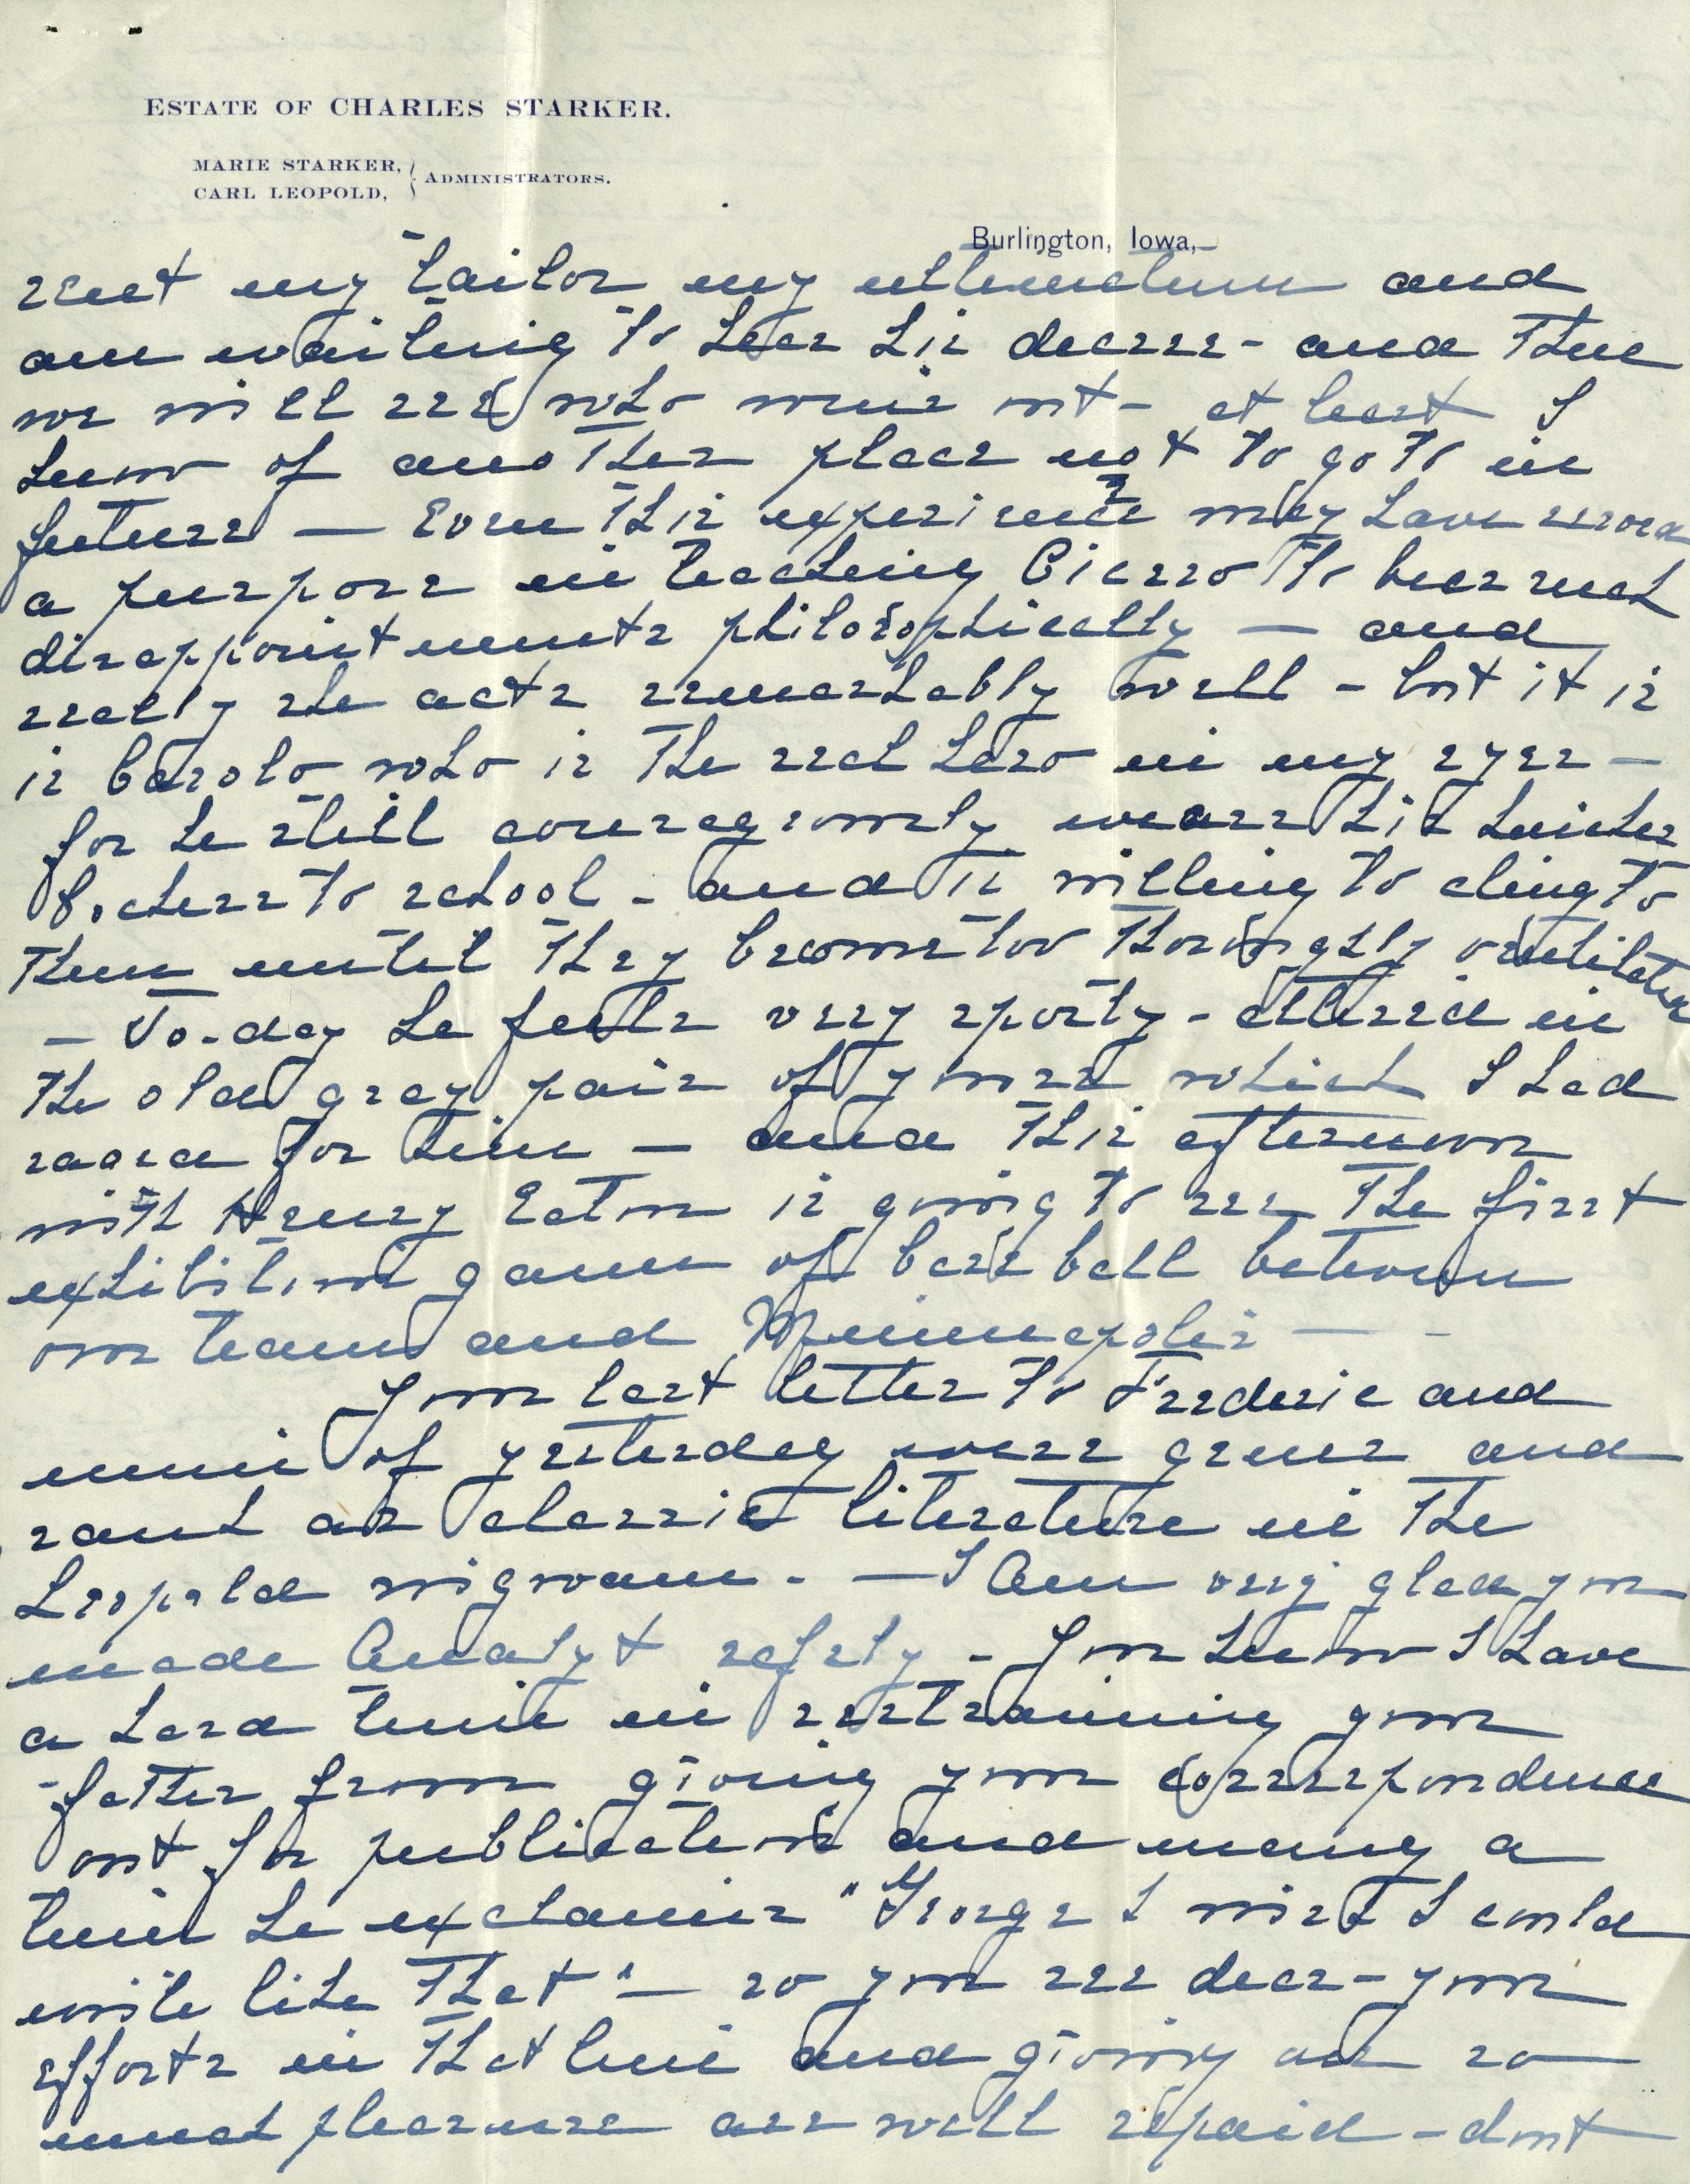 ESTATE OF CHARLES STARKER.
MARIE STARKER,
CARL LEOPOLD, } ADMINISTRATORS.
Burlington, Iowa,
sent my tailor my ultimatum and
am waiting to hear his decree - and then
we will see who wins out - at least I
know of another place not to go to in
future — Even this experience may have served
a purpose in teaching Cicero to bear such
disappointments philosophically — and
really she acts remarkably well - but it is
is Carolo who is the real hero in my eyes -
for he still courageously wears his knicker
bockers to school - and is willing to cling to
them until they become too thoroughly ventilated
- To-day he feels very sporty - attired in
the old gray pair of yours which I had
saved for him — and this afternoon
with Henry Eaton is going to see the first
exhibition game of base ball between
our team and Minneapolis — -
Your last letter to Frederic and
mine of yesterday were gems and
rank as classic literature in the
Leopold wigwam. — I am very glad you
made safely - You know I have
a hard time in restraining your
father from giving your correspondence
out for publication and many a
time he exclaims "George I wish I could
write like that" — so you see dear - your
efforts in that line and giving us so
much pleasure are well repaid - dont